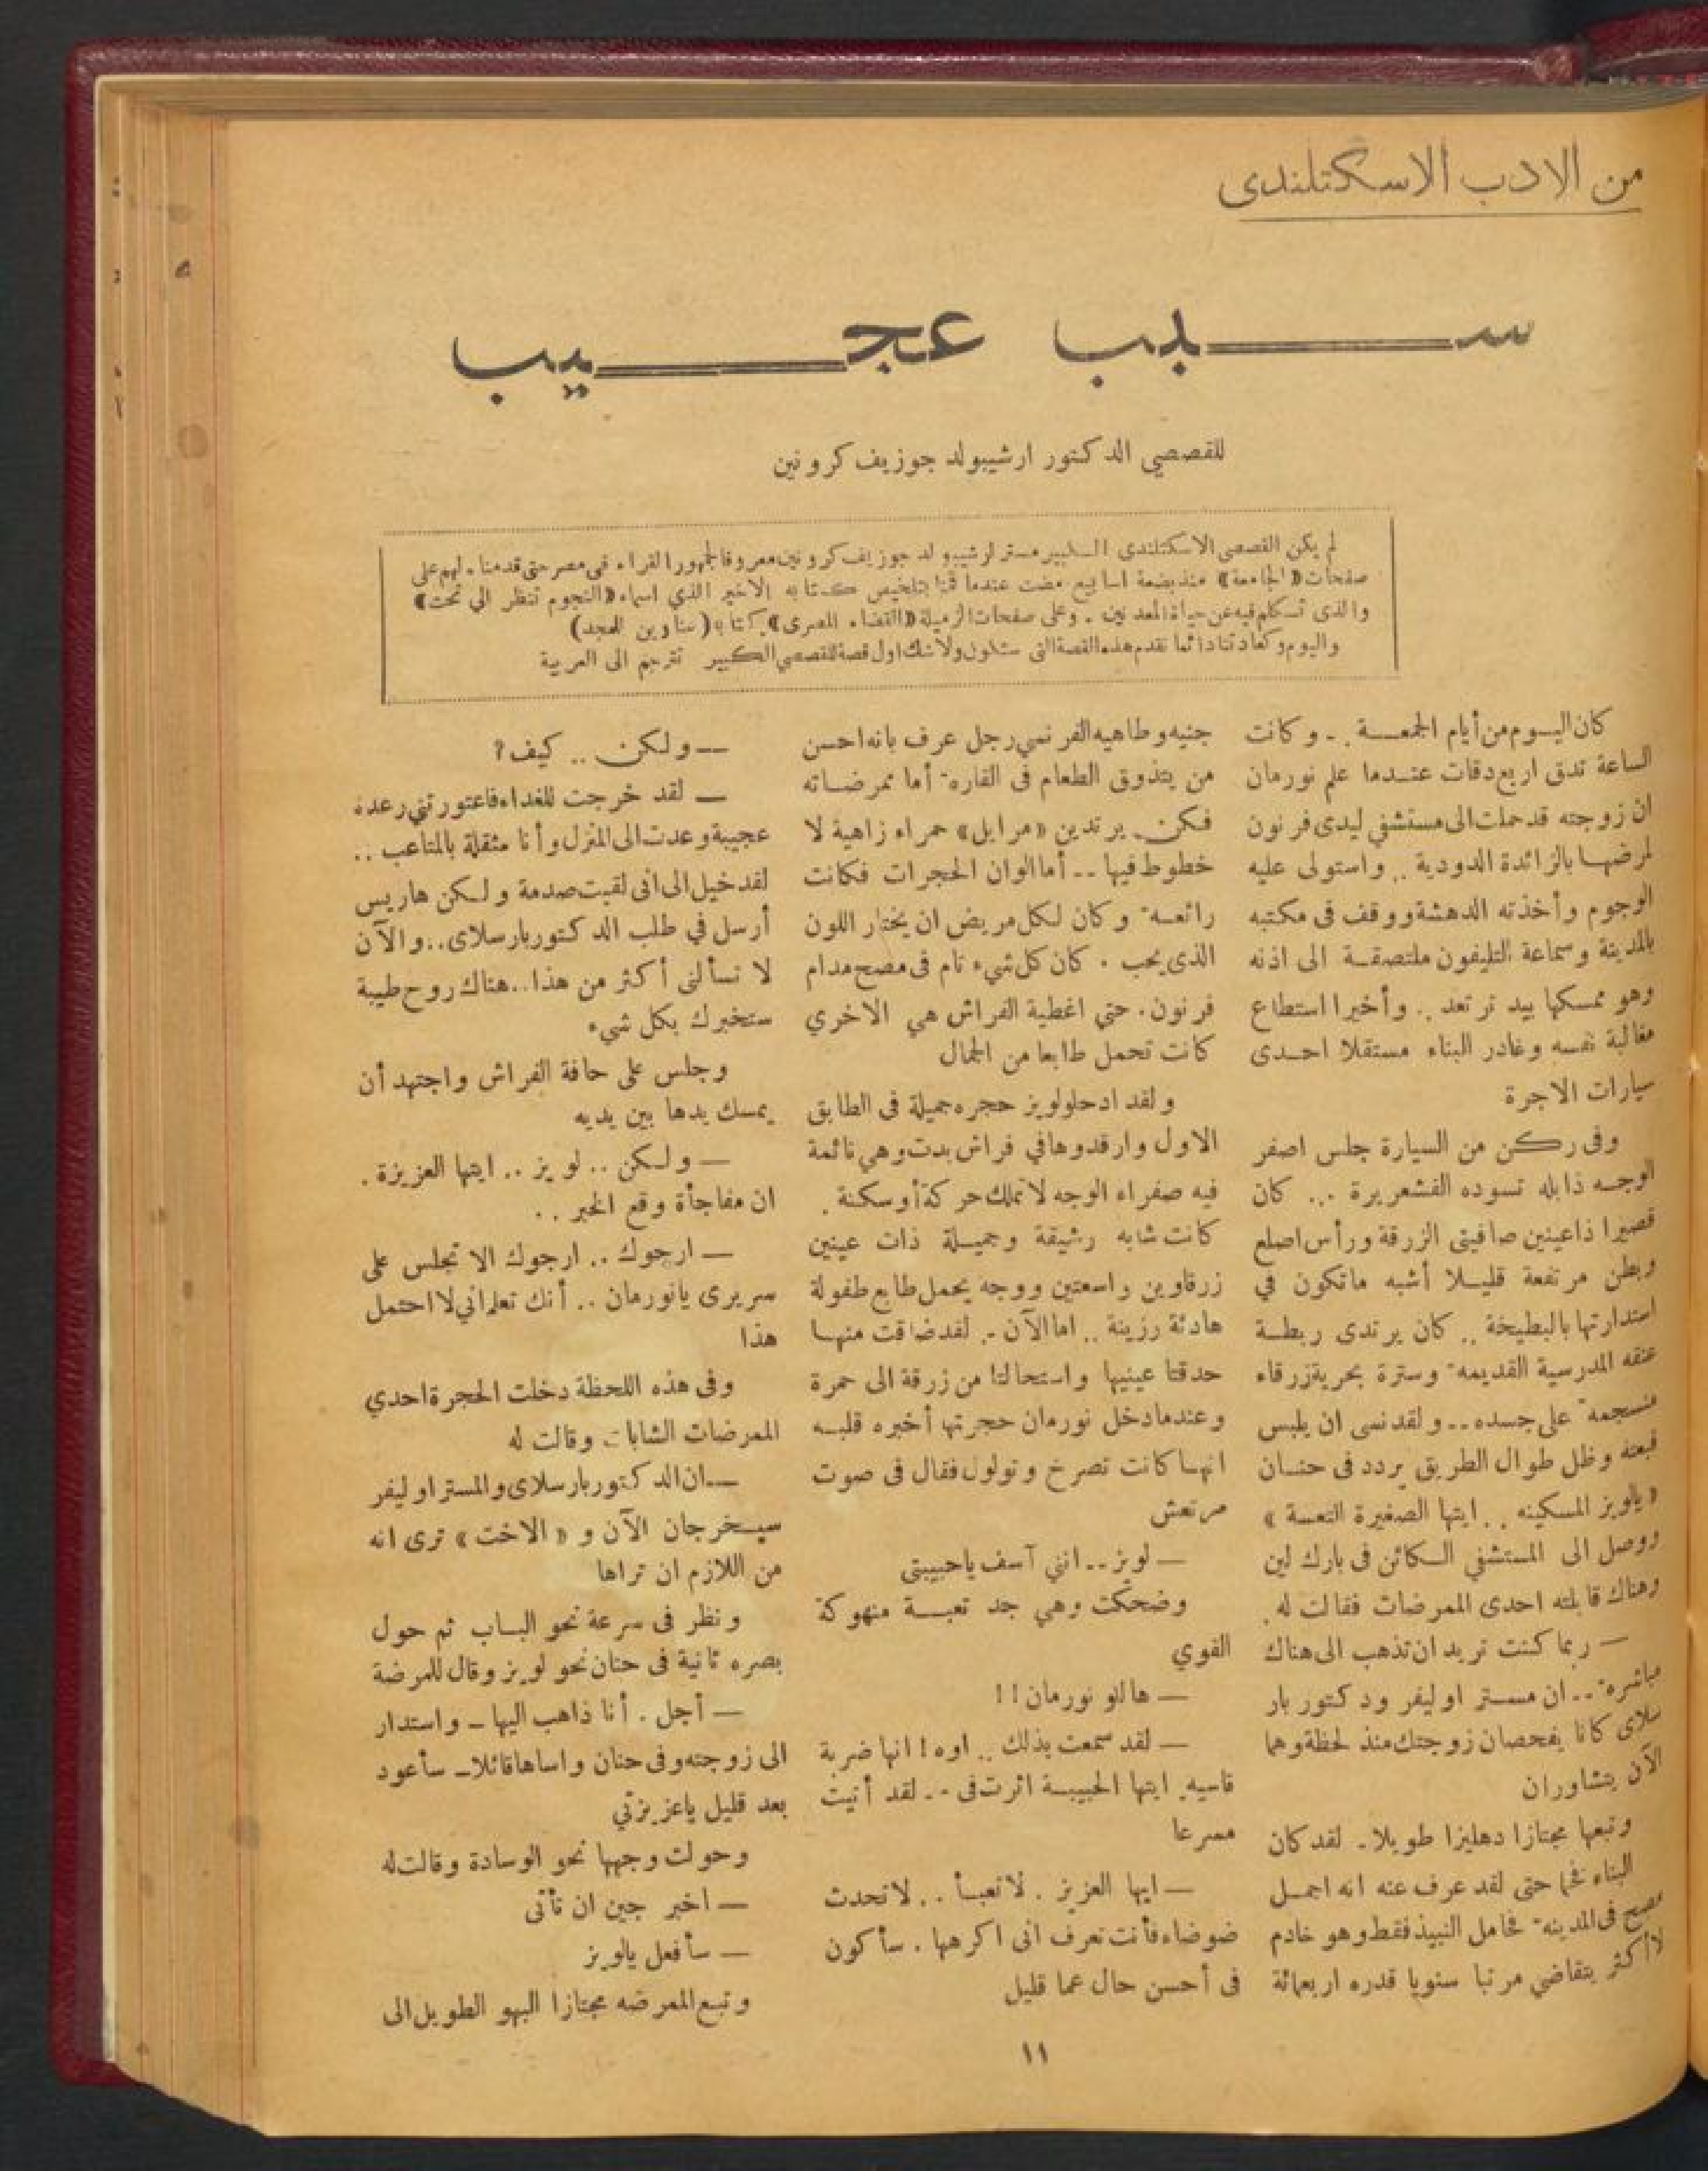 من الادب الاسكتلندى
سبب عجيب
للقصصي الدكتور ارشيبولد جوزيف كرونين
لم يكن القصصى الاسكتلندى الكبير مستر ارشيبولد جوزيف كرونين معروفا لجمهور القراء فى مصر حتى قدمناه لهم على
صفحات «الجامعة» منذ بضعة اسابيع مضت عندما قمنا بتلخيص كتابه الاخير الذي اسماه «النجوم تنظر الي تحت»
والذى تكلم فيه عن حياة المعدنين . وعلى صفحات الزميلة «القضاء المصرى» كتابه (عناوين المجد)
واليوم وكعادتنا دائما نقدم هذه القصة التى ستكون ولاشك اول قصة للقصصي الكبير تترجم الى العربية
كان اليوم من أيام الجمعة .. وكانت
الساعة تدق اربع دقات عندما علم نورمان
ان زوجته قد حملت الى مستشفي ليدى فرنون
لمرضها بالزائدة الدودية .. واستولى عليه
الوجوم وأخذته الدهشة ووقف فى مكتبه
بالمدينة وسماعة التليفون ملتصقة الى اذنه
وهو ممسكها بيد ترتعد .. وأخيرا استطاع
مغالبة نفسه وغادر البناء مستقلا احدى
سيارات الاجرة
وفى ركن من السيارة جلس اصفر
الوجه ذابله تسوده القشعريرة .. كان
قصيرا ذاعينين صافيتى الزرقة ورأس اصلع
وبطن مرتفعة قليلا أشبه ماتكون في
استدارتها بالبطيخة .. كان يرتدى ربطة
عنقه المدرسية القديمه وسترة بحرية زرقاء
منسجمه على جسده .. ولقد نسى ان يلبس
قبعته وظل طوال الطريق يردد فى حنان
« يالويز المسكينه .. ايتها الصغيرة التعسة »
ووصل الى المستشفي الكائن فى بارك لين
وهناك قابلته احدى الممرضات فقالت له .
— ربما كنت تريد ان تذهب الى هناك
مباشره .. ان مستر اوليفر ودكتور بار
سلاى كانا يفحصان زوجتك منذ لحظة وهما
الآن يتشاوران
وتبعها مجتازا دهليزا طويلا . لقد كان
البناء فخما حتى لقد عرف عنه انه اجمل
مصح فى المدينه فحامل النبيذ فقط وهو خادم
لا أكثر يتقاضي مرتبا سنويا قدره اربعمائة
جنيه وطاهيه الفرنسي رجل عرف بانه احسن
من يتذوق الطعام فى القاره أما ممرضاته
فكن يرتدين «مرايل» حمراء زاهية لا
خطوط فيها .. أما الوان الحجرات فكانت
رائعه وكان لكل مريض ان يختار اللون
الذى يحب . كان كل شيء تام فى مصح مدام
فرنون . حتي اغطية الفراش هي الاخري
كانت تحمل طابعا من الجمال
ولقد ادخلو لويز حجره جميلة فى الطابق
الاول وارقدوها في فراش بدت وهي نائمة
فيه صفراء الوجه لا تملك حركة أو سكنة .
كانت شابه رشيقة وجميلة ذات عينين
زرقاوين واسعتين ووجه يحمل طابع طفولة
هادئة رزينة .. اما الآن .. لقد ضاقت منها
حدقتا عينيها واستحالتا من زرقة الى حمرة
وعندما دخل نورمان حجرتها أخبره قلبه
انها كانت تصرخ وتولول فقال فى صوت
مرتعش
— لويز .. انني آسف ياحبيبتى
وضحكت وهي جد تعبة منهوكة
القوي
— هاللو نورمان ! !
— لقد سمعت بذلك .. اوه ! انها ضربة
قاسيه . ايتها الحبيبة اثرت فى .. لقد أتيت
مسرعا
— ايها العزيز . لا تعبأ .. لا تحدث
ضوضاء فأنت تعرف انى اكرهها . سأكون
فى أحسن حال عما قليل
— ولكن .. كيف ؟
— لقد خرجت للغداء فاعتورتني رعده
عجيبة وعدت الى المنزل وأنا مثقلة بالمتاعب ..
لقد خيل الى انى لقيت صدمة ولكن هاريس
أرسل في طلب الدكتور بارسلاى .. والآن
لا تسألنى أكثر من هذا .. هناك روح طيبة
ستخبرك بكل شيء
وجلس على حافة الفراش واجتهد أن
يمسك يدها بين يديه
— ولكن .. لويز .. ايتها العزيزة .
ان مفاجأة وقع الخبر ..
— ارجوك .. ارجوك الا تجلس على
سريرى يانورمان .. أنك تعلم اني لا احتمل
هذا
وفى هذه اللحظة دخلت الحجرة احدي
الممرضات الشابات وقالت له
— ان الدكتور بارسلاى والمستر اوليفر
سيخرجان الآن و « الاخت » ترى انه
من اللازم ان تراها
ونظر فى سرعة نحو الباب ثم حول
بصره ثانية فى حنان نحو لويز وقال للمرضة
— أجل . أنا ذاهب اليها — واستدار
الى زوجته وفى حنان واساها قائلا — سأعود
بعد قليل ياعزيزتي
وحولت وجهها نحو الوسادة وقالت له
— اخبر جين ان تأتى
— سأفعل يالويز
وتبع الممرضه مجتازا البهو الطويل الى
١١